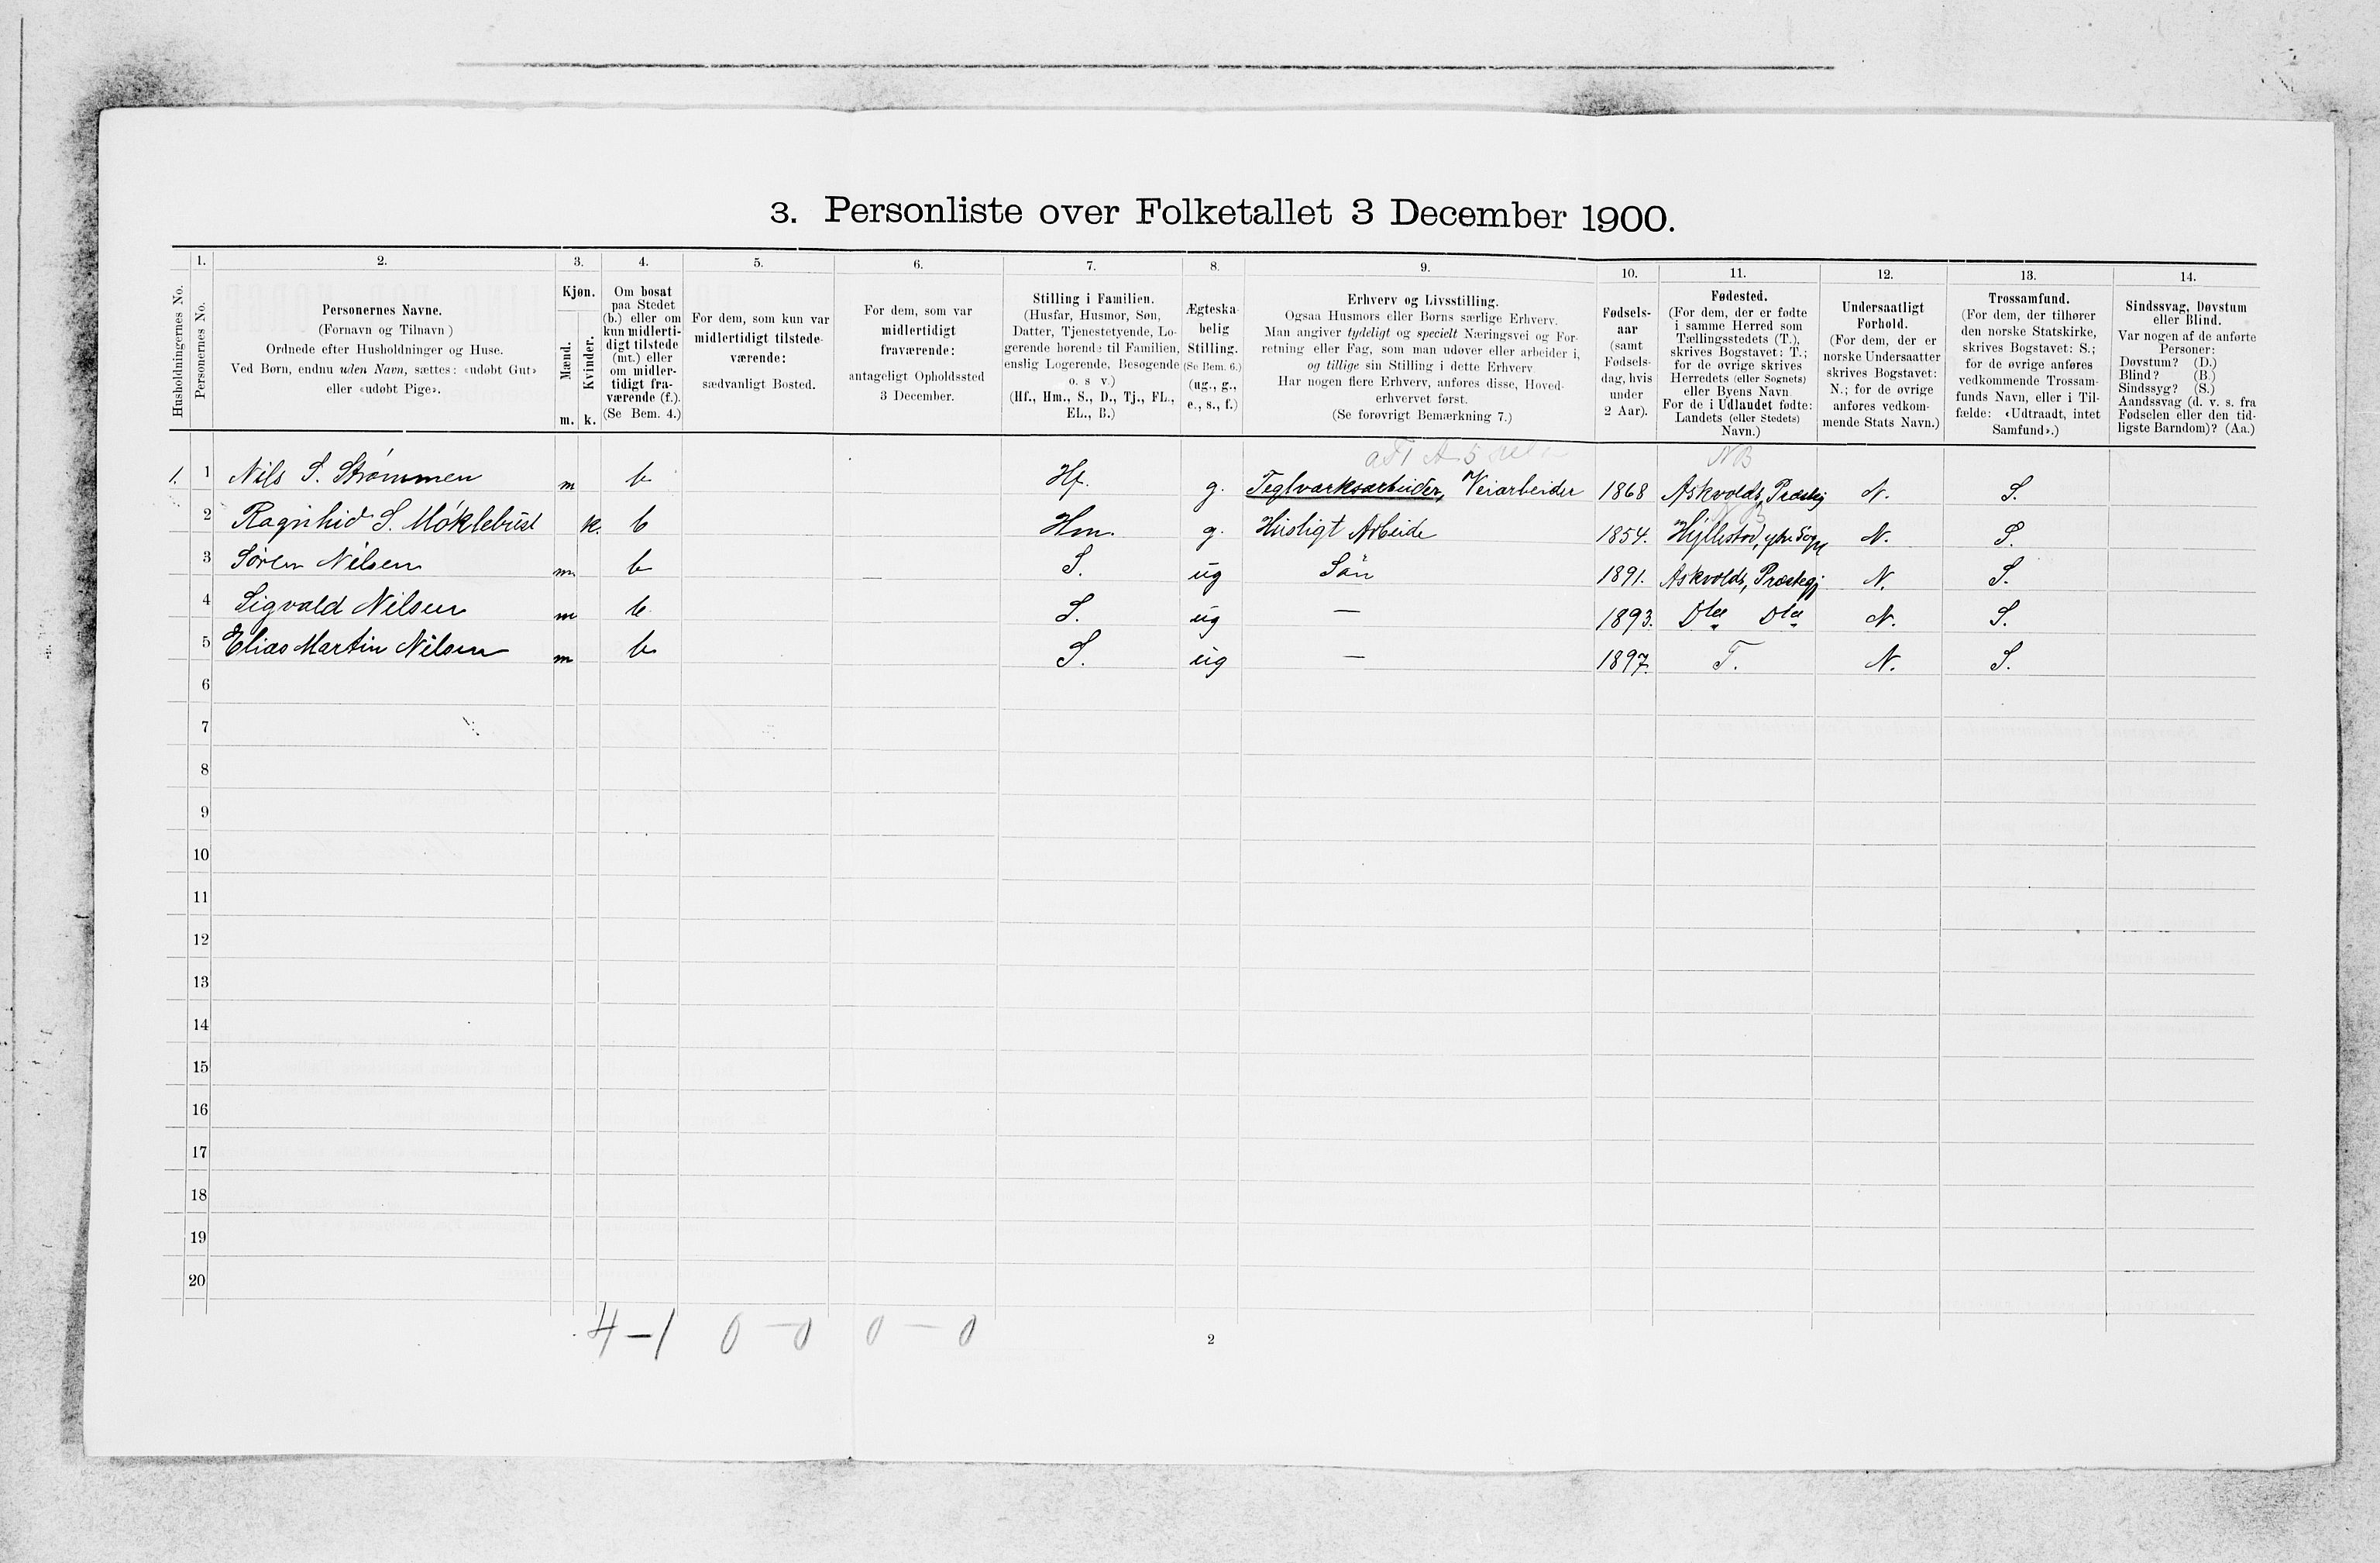 3. Personliste over Folketallet 3 December 1900.
Husholdningernes No.
1.
Personernes No.
2.
Personernes Navne.
(Fornavn og Tilnavn)
Ordnede efter Husholdninger og Huse.
Ved Børn, endnu uden Navn, sættes: «udøbt Gut»
eller «udøbt Pige».
3.
Kjøn.
Mænd.
Kvinder.
m. k.
4.
Om bosat
paa Stedet
(b.) eller om
kun midlerti-
digt tilstede
(mt.) eller
om midler-
tidigt fra-
værende (f.).
(Se Bem. 4.)
5.
For dem, som kun var
midlertidigt tilstede-
værende:
sædvanligt Bosted.
6.
For dem, som var
midlertidigt
fraværende:
antageligt Opholdssted
3 December.
7.
Stilling i Familien.
(Husfar, Husmor, Søn,
Datter, Tjenestetyende, Lo-
gerende hørende til Familien,
enslig Logerende, Besøgende
o. s v.)
(Hf., Hm., S., D., Tj., FL.,
EL., B.)
8.
Ægteska-
belig
Stilling.
(Se Bem. 6.)
(ug., g.,
e., s., f.)
9.
Erhverv og Livsstilling.
Ogsaa Husmors eller Børns særlige Erhverv.
Man angiver tydeligt og specielt Næringsvei og For-
retning eller Fag, som man udøver eller arbeider i,
og tillige sin Stilling i dette Erhverv
Har nogen flere Erhverv, anføres disse, Hoved-
erhvervet først.
(Se forøvrigt Bemærkning 7.)
10.
Fødsels-
aar
(samt
Fødsels-
dag, hvis
under
2 Aar).
11.
Fødested.
(For dem, der er fødte
i samme Herred som
Tællingsstedets (T.),
skrives Bogstavet: T.;
for de øvrige skrives
Herredets (eller Sognets)
eller Byens Navn.
For de i Udlandet fødte:
Landets (eller Stedets)
Navn.)
12.
Undersaatligt
Forhold.
(For dem, der er
norske Undersaatter
skrives Bogstavet:
N.; for de øvrige
anføres vedkom-
mende Stats Navn.)
13.
Trossamfund.
(For dem, der tilhører
den norske Statskirke,
skrives Bogstavet: S.;
for de øvrige anføres
vedkommende Trossam-
funds Navn, eller i Til-
fælde: «Udtraadt, intet
Samfund».)
14.
Sindssvag, Døvstum
eller Blind.
Var nogen af de anførte
Personer:
Døvstum? (D.)
Blind? (B.)
Sindssyg? (S.)
Aandssvag (d. v. s. fra
Fødselen eller den tid-
ligste Barndom)? (Aa.)
1. 1 Nils S. Strømmen m b Hf. g. Teglværksarbeider, Veiarbeider 1868 Askvolds, Præstegj N. S.
2 Ragnhid S. Møklebust k. b Hm. g. Husligt Arbeide 1854. Hyllestad, N. S.
3 Søren Nilsen m. b S. ug Søn 1891. Askvolds, Præstegj N. S.
4 Sigvald Nilsen m b. S. ug — 1893. Dto Dto N. S.
5 Elias Martin Nilsen m b. S. ug — 1897. T. N. S.
6
7
8
9
10
11
12
13
14
15
16
17
18
19
20
4 – 1 0 – 0 0 – 0
2